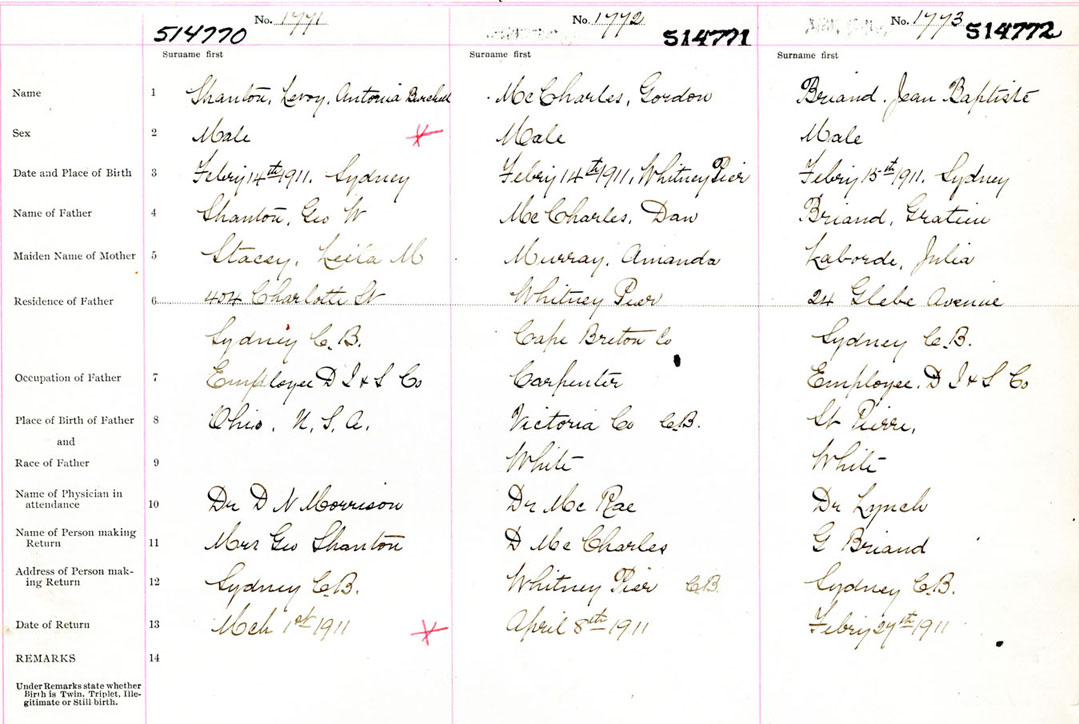 No. 1771 No. 1772 No. 1773
514770 514771 514772
Surname first Surname first Surname first
Name 1 Shanton, Levoy, Antonia Burchell McCharles, Gordon Briand, Jean Baptiste
Sex 2 Male Male Male
Date and Place of Birth 3 Febry 14th 1911. Sydney Febry 14th 1911, Whitney Pier Febry 15th 1911. Sydney
Name of Father 4 Shanton, Geo W McCharles, Dan Briand, Gratien
Maiden Name of Mother 5 Stacey, Leila M Murray, Amanda Laborde, Julia
Residence of Father 6 404 Charlotte St Whitney Pier 24 Glebe Avenue
Sydney C.B. Cape Breton Co Sydney C.B.
Occupation of Father 7 Employee D I & S Co Carpenter Employee. D I & S Co
Place of Birth of Father 8 Ohio, U.S.A. Victoria Co C.B. St Pierre,
and
Race of Father 9 White White
Name of Physician in
attendance 10 Dr D N Morrison Dr McRae Dr Lynch
Name of Person making
Return 11 Mrs Geo Shanton D McCharles G Briand
Address of Person mak-
ing Return 12 Sydney C.B. Whitney Pier C.B. Sydney C.B.
Date of Return 13 Mch 1st 1911 April 8th 1911 Febry 27th 1911
REMARKS 14
Under Remarks state whether
Birth is Twin, Triplet, Ille-
gitimate or Still birth.